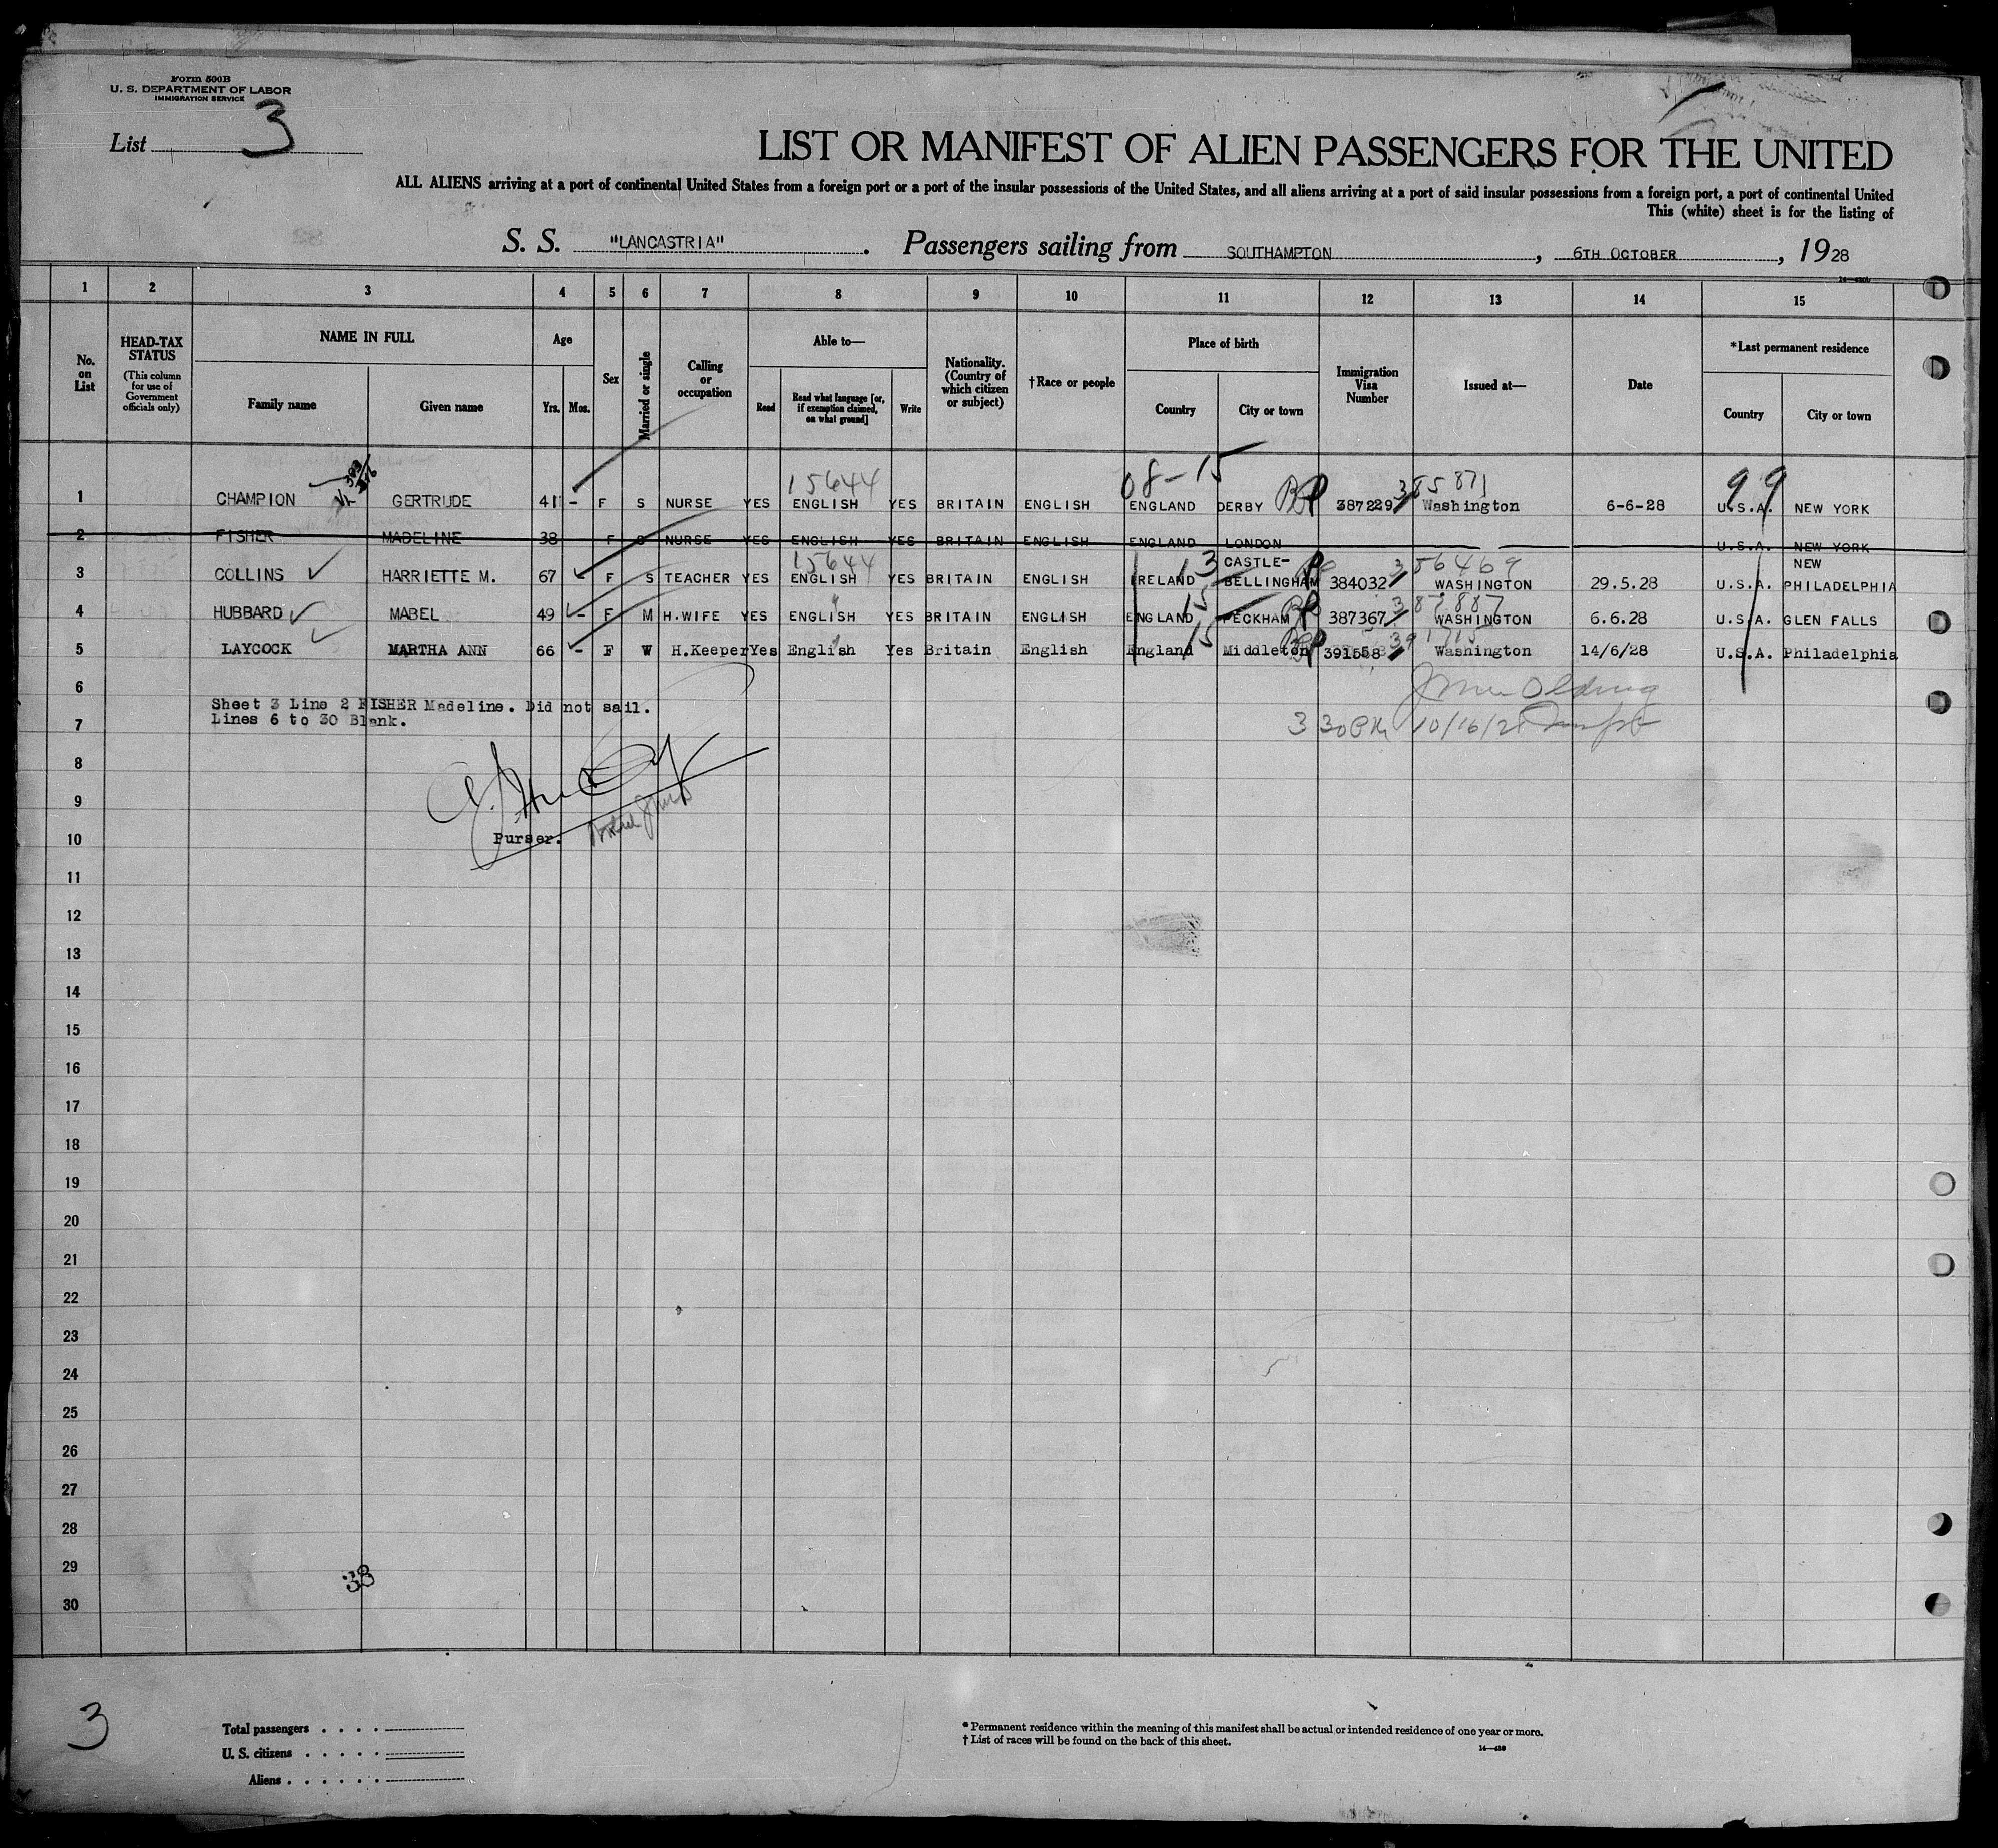 Form 500B
U. S. DEPARTMENT OF LABOR
IMMIGRATION SERVICE
List 3
LIST OR MANIFEST OF ALIEN PASSENGERS FOR THE UNITED
ALL ALIENS arriving at a port of continental United States from a foreign port or a port of the insular possessions of the United States, and all aliens arriving at a port of said insular possessions from a foreign port, a port of continental United
This (white) sheet is for the listing of
S. S. "LANCASTRIA". Passengers sailing from SOUTHAMPTON, 6TH OCTOBER, 1928
1 2 3 4 5 6 7 8 9 10 11 12 13 14 15
No. on List
HEAD-TAX STATUS (This column for use of Government officials only)
NAME IN FULL
Family name
Given name
Age
Yrs.
Mos.
Sex
Married or single
Calling or occupation
Able to—
Read
Read what language [or, if exemption claimed, on what ground]
Write
Nationality. (Country of which citizen or subject)
†Race or people
Place of birth
Country
City or town
Immigration Visa Number
Issued at—
Date
*Last permanent residence
Country
City or town
15644 08-15 385871 99
1 CHAMPION GERTRUDE 41 - F S NURSE YES ENGLISH YES BRITAIN ENGLISH ENGLAND DERBY 387229 Washington 6-6-28 U.S.A. NEW YORK
2 FISHER MADELINE 38 F S NURSE YES ENGLISH YES BRITAIN ENGLISH ENGLAND LONDON U.S.A. NEW YORK
15644 13 CASTLE- 356469 NEW
3 COLLINS HARRIETTE M. 67 F S TEACHER YES ENGLISH YES BRITAIN ENGLISH IRELAND BELLINGHAM 384032 WASHINGTON 29.5.28 U.S.A. PHILADELPHIA
15 387887
4 HUBBARD MABEL 49 - F M H.WIFE YES ENGLISH YES BRITAIN ENGLISH ENGLAND PECKHAM 387367 WASHINGTON 6.6.28 U.S.A. GLEN FALLS
15 391715
5 LAYCOCK MARTHA ANN 66 - F W H.Keeper Yes English Yes Britain English England Middleton 391558 Washington 14/6/28 U.S.A. Philadelphia
6
Sheet 3 Line 2 FISHER Madeline. Did not sail.
Lines 6 to 30 Blank.
7
3 30 PM 10/16/28
8
9
10
Purser.
11
12
13
14
15
16
17
18
19
20
21
22
23
24
25
26
27
28
29
33
30
3
Total passengers . . . .
U. S. citizens . . . . .
Aliens . . . . . .
* Permanent residence within the meaning of this manifest shall be actual or intended residence of one year or more.
† List of races will be found on the back of this sheet.